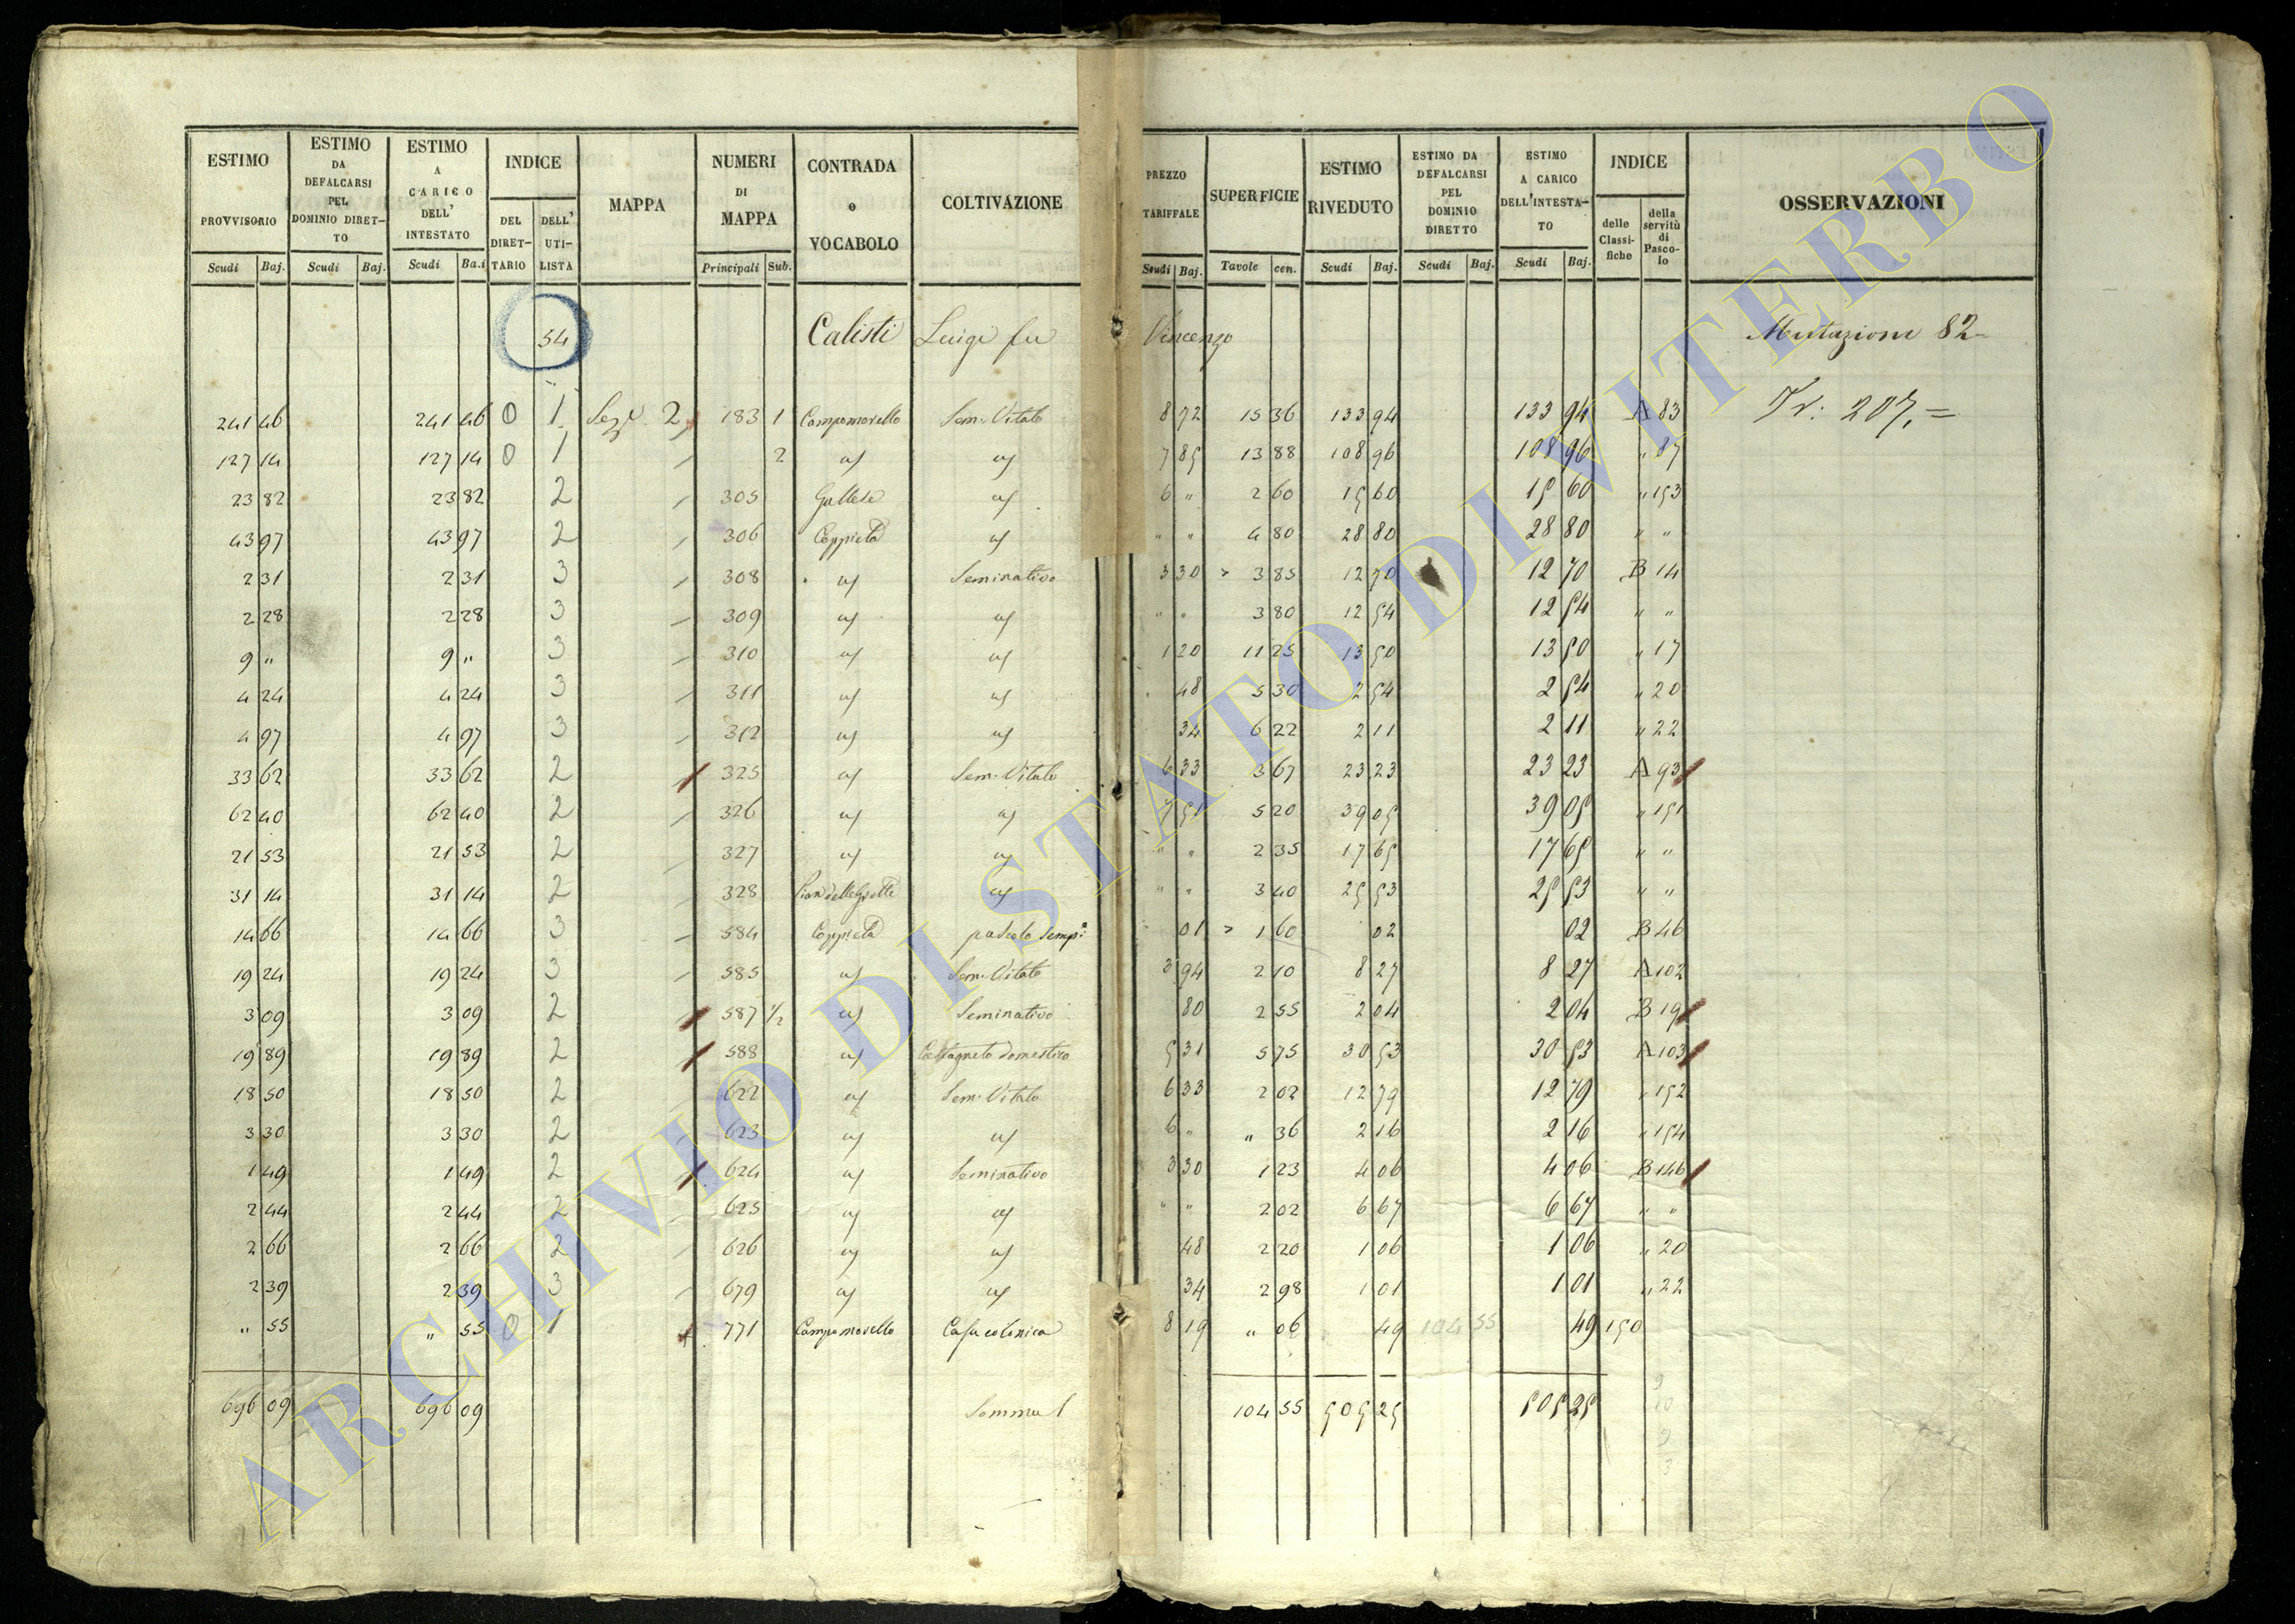 ESTIMO PROVVISORIO Scudi Baj. ESTIMO DA DEFALCARSI PEL DOMINIO DIRET-TO Scudi Baj. ESTIMO A CARICO DELL' INTESTATO Scudi Ba.i INDICE DEL DIRET-TARIO DELL' UTI-LISTA MAPPA NUMERI DI MAPPA Principali Sub. CONTRADA o VOCABOLO COLTIVAZIONE PREZZO TARIFFALE Scudi Baj. SUPERFICIE Tavole cen. ESTIMO RIVEDUTO Scudi Baj. ESTIMO DA DEFALCARSI PEL DOMINIO DIRETTO Scudi Baj. ESTIMO A CARICO DELL'INTESTA-TO Scudi Baj. INDICE delle Classi-fiche della servitù di Pasco-lo OSSERVAZIONI
54 Calisti Luigi fu Vincenzo Mutazione 82
241 46 241 46 0 1 Sez. 2 183 1 Campomorello Sem. Vitato 8 72 15 36 133 94 133 94 A 83 Tr: 207. =
127 14 127 14 0 1 2 " " 7 85 13 88 108 96 108 96 " 87
23 82 23 82 2 305 Gallese " 6 " 2 60 15 60 15 60 " 153
43 97 43 97 2 306 Coppieta " " " 4 80 28 80 28 80 " "
2 31 2 31 3 308 " Seminativo 3 30 3 85 12 70 12 70 B 14
2 28 2 28 3 309 " " " " 3 80 12 54 12 54 " "
9 " 9 " 3 310 " " 1 20 11 25 13 50 13 50 " 17
4 24 4 24 3 311 " " 48 5 30 2 54 2 54 " 20
4 97 4 97 3 312 " " 34 6 22 2 11 2 11 " 22
33 62 33 62 2 325 " Sem. Vitato 6 33 3 67 23 23 23 23 A 93
62 40 62 40 2 326 " " 7 51 5 20 39 05 39 05 " 151
21 53 21 53 2 327 " " " " 2 35 17 65 17 65 " "
31 14 31 14 2 328 Pian delle Grotte " " " 3 40 25 53 25 53 " "
14 66 14 66 3 584 Coppieta pascolo semp.e 01 1 60 02 02 B 46
19 24 19 24 3 585 " Sem. Vitato 3 94 2 10 8 27 8 27 A 102
3 09 3 09 2 587 1/2 " Seminativo 80 2 55 2 04 2 04 B 19
19 89 19 89 2 588 " Castagneto domestico 5 31 5 75 30 53 30 53 A 103
18 50 18 50 2 622 " Sem. Vitato 6 33 2 02 12 79 12 79 " 152
3 30 3 30 2 623 " " 6 " " 36 2 16 2 16 " 154
1 49 1 49 2 624 " Seminativo 3 30 1 23 4 06 4 06 B 146
2 44 2 44 2 625 " " " " 2 02 6 67 6 67 " "
2 66 2 66 2 626 " " 48 2 20 1 06 1 06 " 20
2 39 2 39 3 679 " " 34 2 98 1 01 1 01 " 22
" 55 " 55 0 1 771 Campomorello Casa colonica 8 19 " 06 49 104 55 49 150
696 09 696 09 Somma 104 55 505 25 505 25
ARCHIVIO DI STATO DI VITERBO